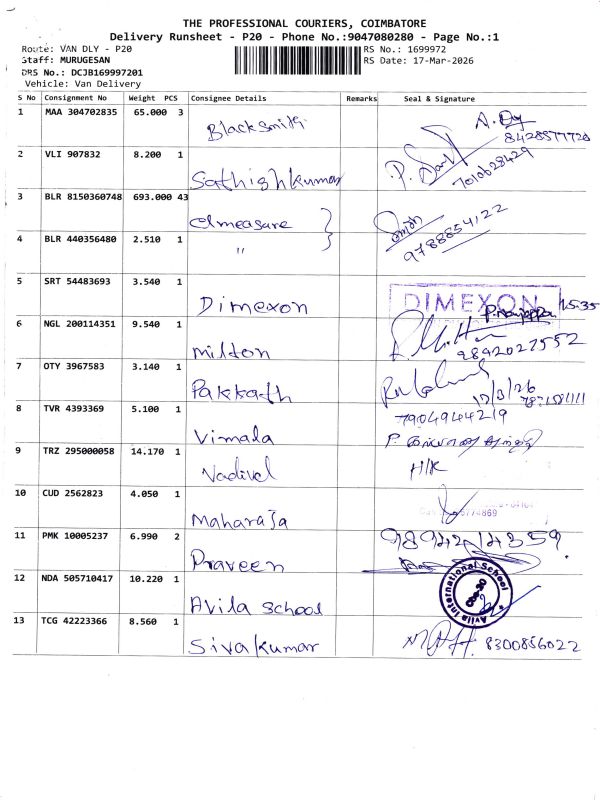 THE PROFESSIONAL COURIERS, COIMBATORE
Delivery Runsheet - P20 - Phone No.:9047080280 - Page No.:1
Route: VAN DLY - P20 RS No.: 1699972
Staff: MURUGESAN RS Date: 17-Mar-2026
DRS No.: DCJB169997201
Vehicle: Van Delivery
S No Consignment No Weight PCS Consignee Details Remarks Seal & Signature
1 MAA 304702835 65.000 3 Blacksmith
8428577720
2 VLI 907832 8.200 1 Sathishkumar
7010628429
3 BLR 8150360748 693.000 43 elmeasure
9788854122
4 BLR 440356480 2.510 1 "
5 SRT 54483693 3.540 1 Dimexon DIMEXON
15.35
6 NGL 200114351 9.540 1 Milton
9842027552
7 OTY 3967583 3.140 1 Pakkath
17/3/26
8 TVR 4393369 5.100 1 Vimala
7904944219
9 TRZ 295000058 14.170 1 Vadivel H/K
10 CUD 2562823 4.050 1 Maharaja
11 PMK 10005237 6.990 2 Praveen 9894214359.
12 NDA 505710417 10.220 1 Avila school Avila International School
13 TCG 42223366 8.560 1 Sivakumar 8300856022